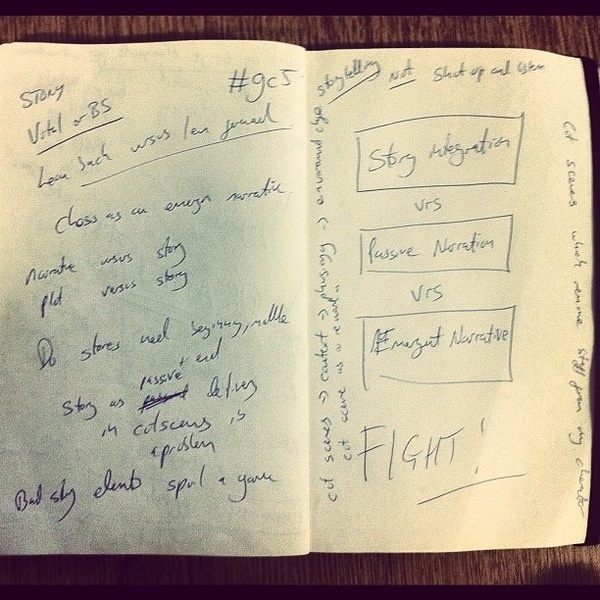 STORY
#gc5
Vital or BS
Lean back versus lean forward
Chess as an emergent narrative
narrative versus story
plot versus story
Do stores need beginning, middle
+ end
Story as passive delivery
in cutscenes is
a problem
Bad story elements spoil a game
storytelling Not Shut up and listen
Story integration
vrs
Passive Narration
vrs
Emergent Narrative
FIGHT!
cut scenes → context →
cut scene as a reward
cut scenes which remove stuff from my character